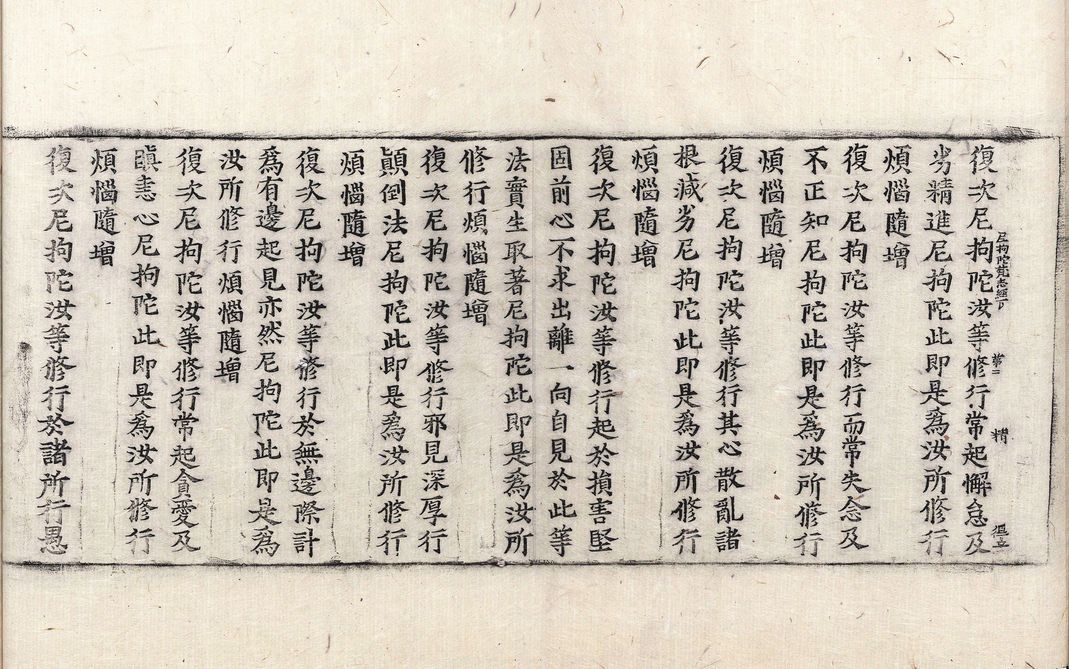 復次尼拘陀汝等修行常起懈怠及
劣精進尼拘陀此即是為汝所修行
煩惱隨增
復次尼拘陀汝等修行而常失念及
不正知尼拘陀此即是為汝所修行
煩惱隨增
復次尼拘陀汝等修行其心散亂諸
根減劣尼拘陀此即是為汝所修行
煩惱隨增
復次尼拘陀汝等修行起於損害堅
固前心不求出離一向自見於此等
法實生取著尼拘陀此即是為汝所
修行煩惱隨增
復次尼拘陀汝等修行邪見深厚行
顛倒法尼拘陀此即是為汝所修行
煩惱隨增
復次尼拘陀汝等修行於無邊際計
為有邊起見亦然尼拘陀此即是為
汝所修行煩惱隨增
復次尼拘陀汝等修行常起貪愛及
瞋恚心尼拘陀此即是為汝所修行
煩惱隨增
復次尼拘陀汝等修行於諸所行愚
尼拘陀梵志經下
精